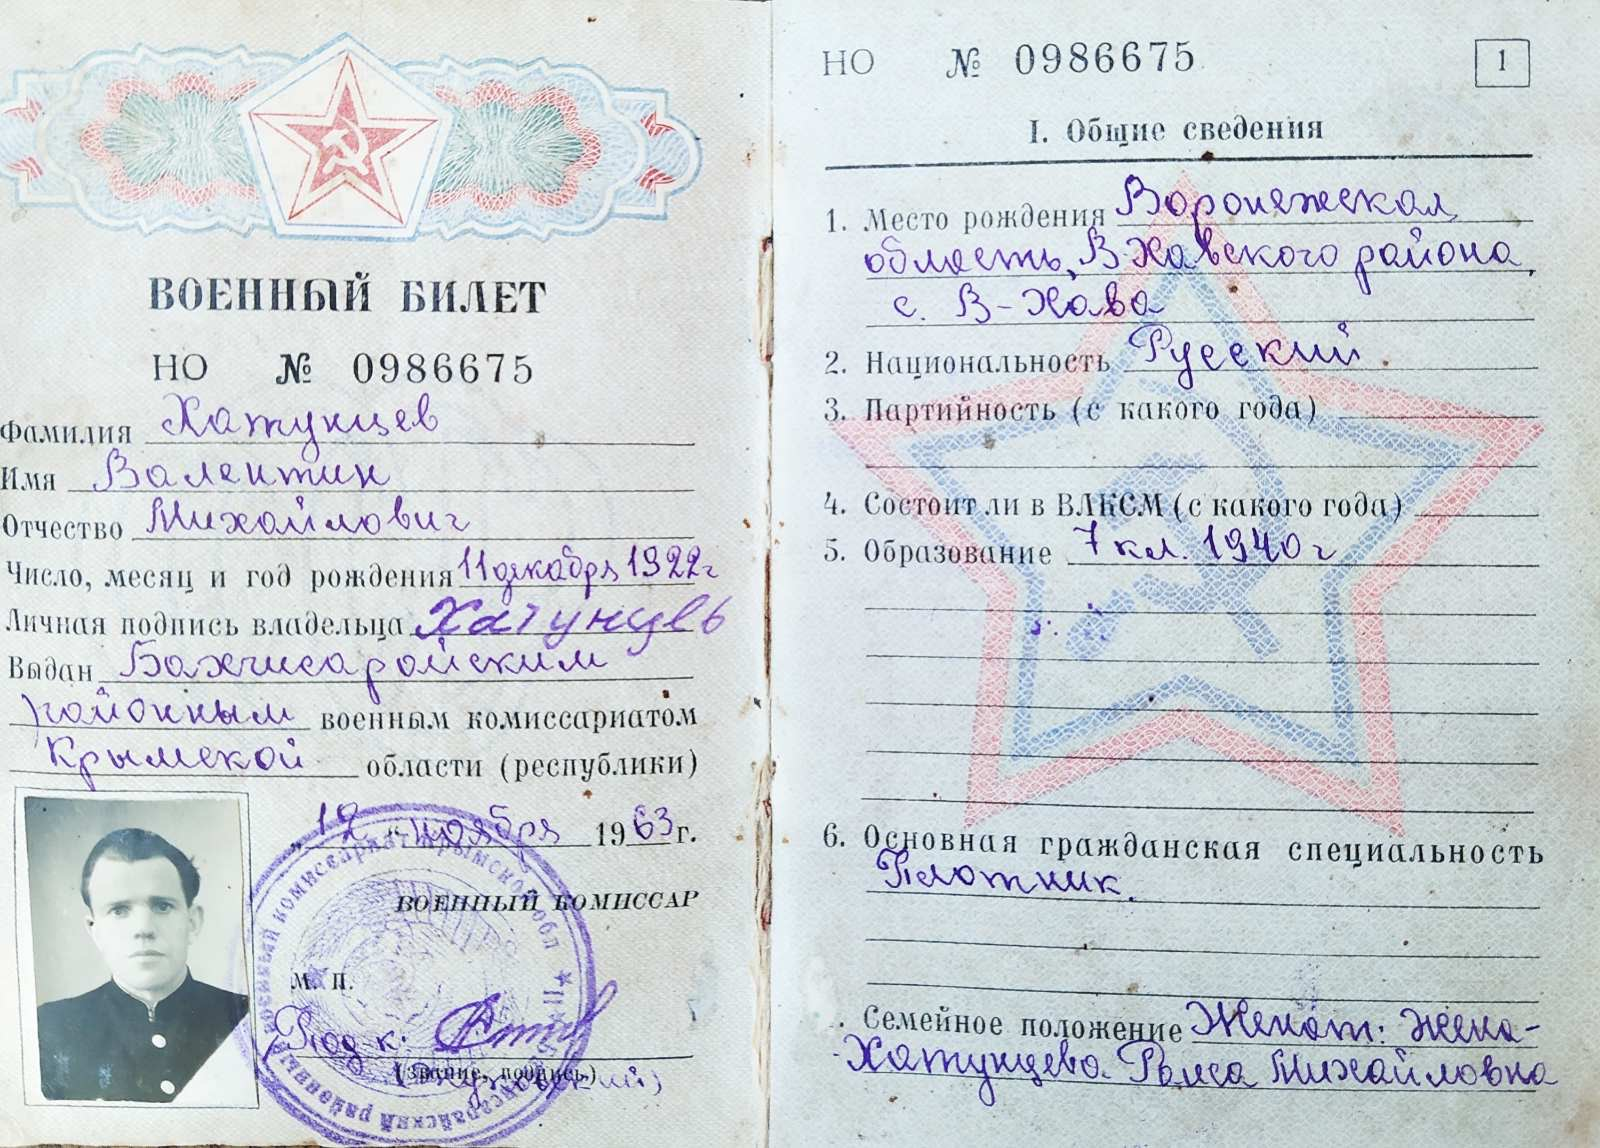 ВОЕННЫЙ БИЛЕТ
НО № 0986675
Фамилия Хатунцев
Имя Валентин
Отчество Михайлович
Число, месяц и год рождения 11 декабря 1922 г
Личная подпись владельца Хатунцевъ
Выдан Бахчисарайским
районным военным комиссариатом
Крымской области (республики)
„12“ ноября 1963 г.
ВОЕННЫЙ КОМИССАР
М. П.
(звание, подпись)
НО № 0986675
1
I. Общие сведения
1. Место рождения Воронежская
область, В-Хавского района,
с. В-Хава
2. Национальность Русский.
3. Партийность (с какого года)
4. Состоит ли в ВЛКСМ (с какого года)
5. Образование 7 кл. 1940 г
6. Основная гражданская специальность
Плотник.
. Семейное положение Женат: жена-
Хатунцева Раиса Михайловна